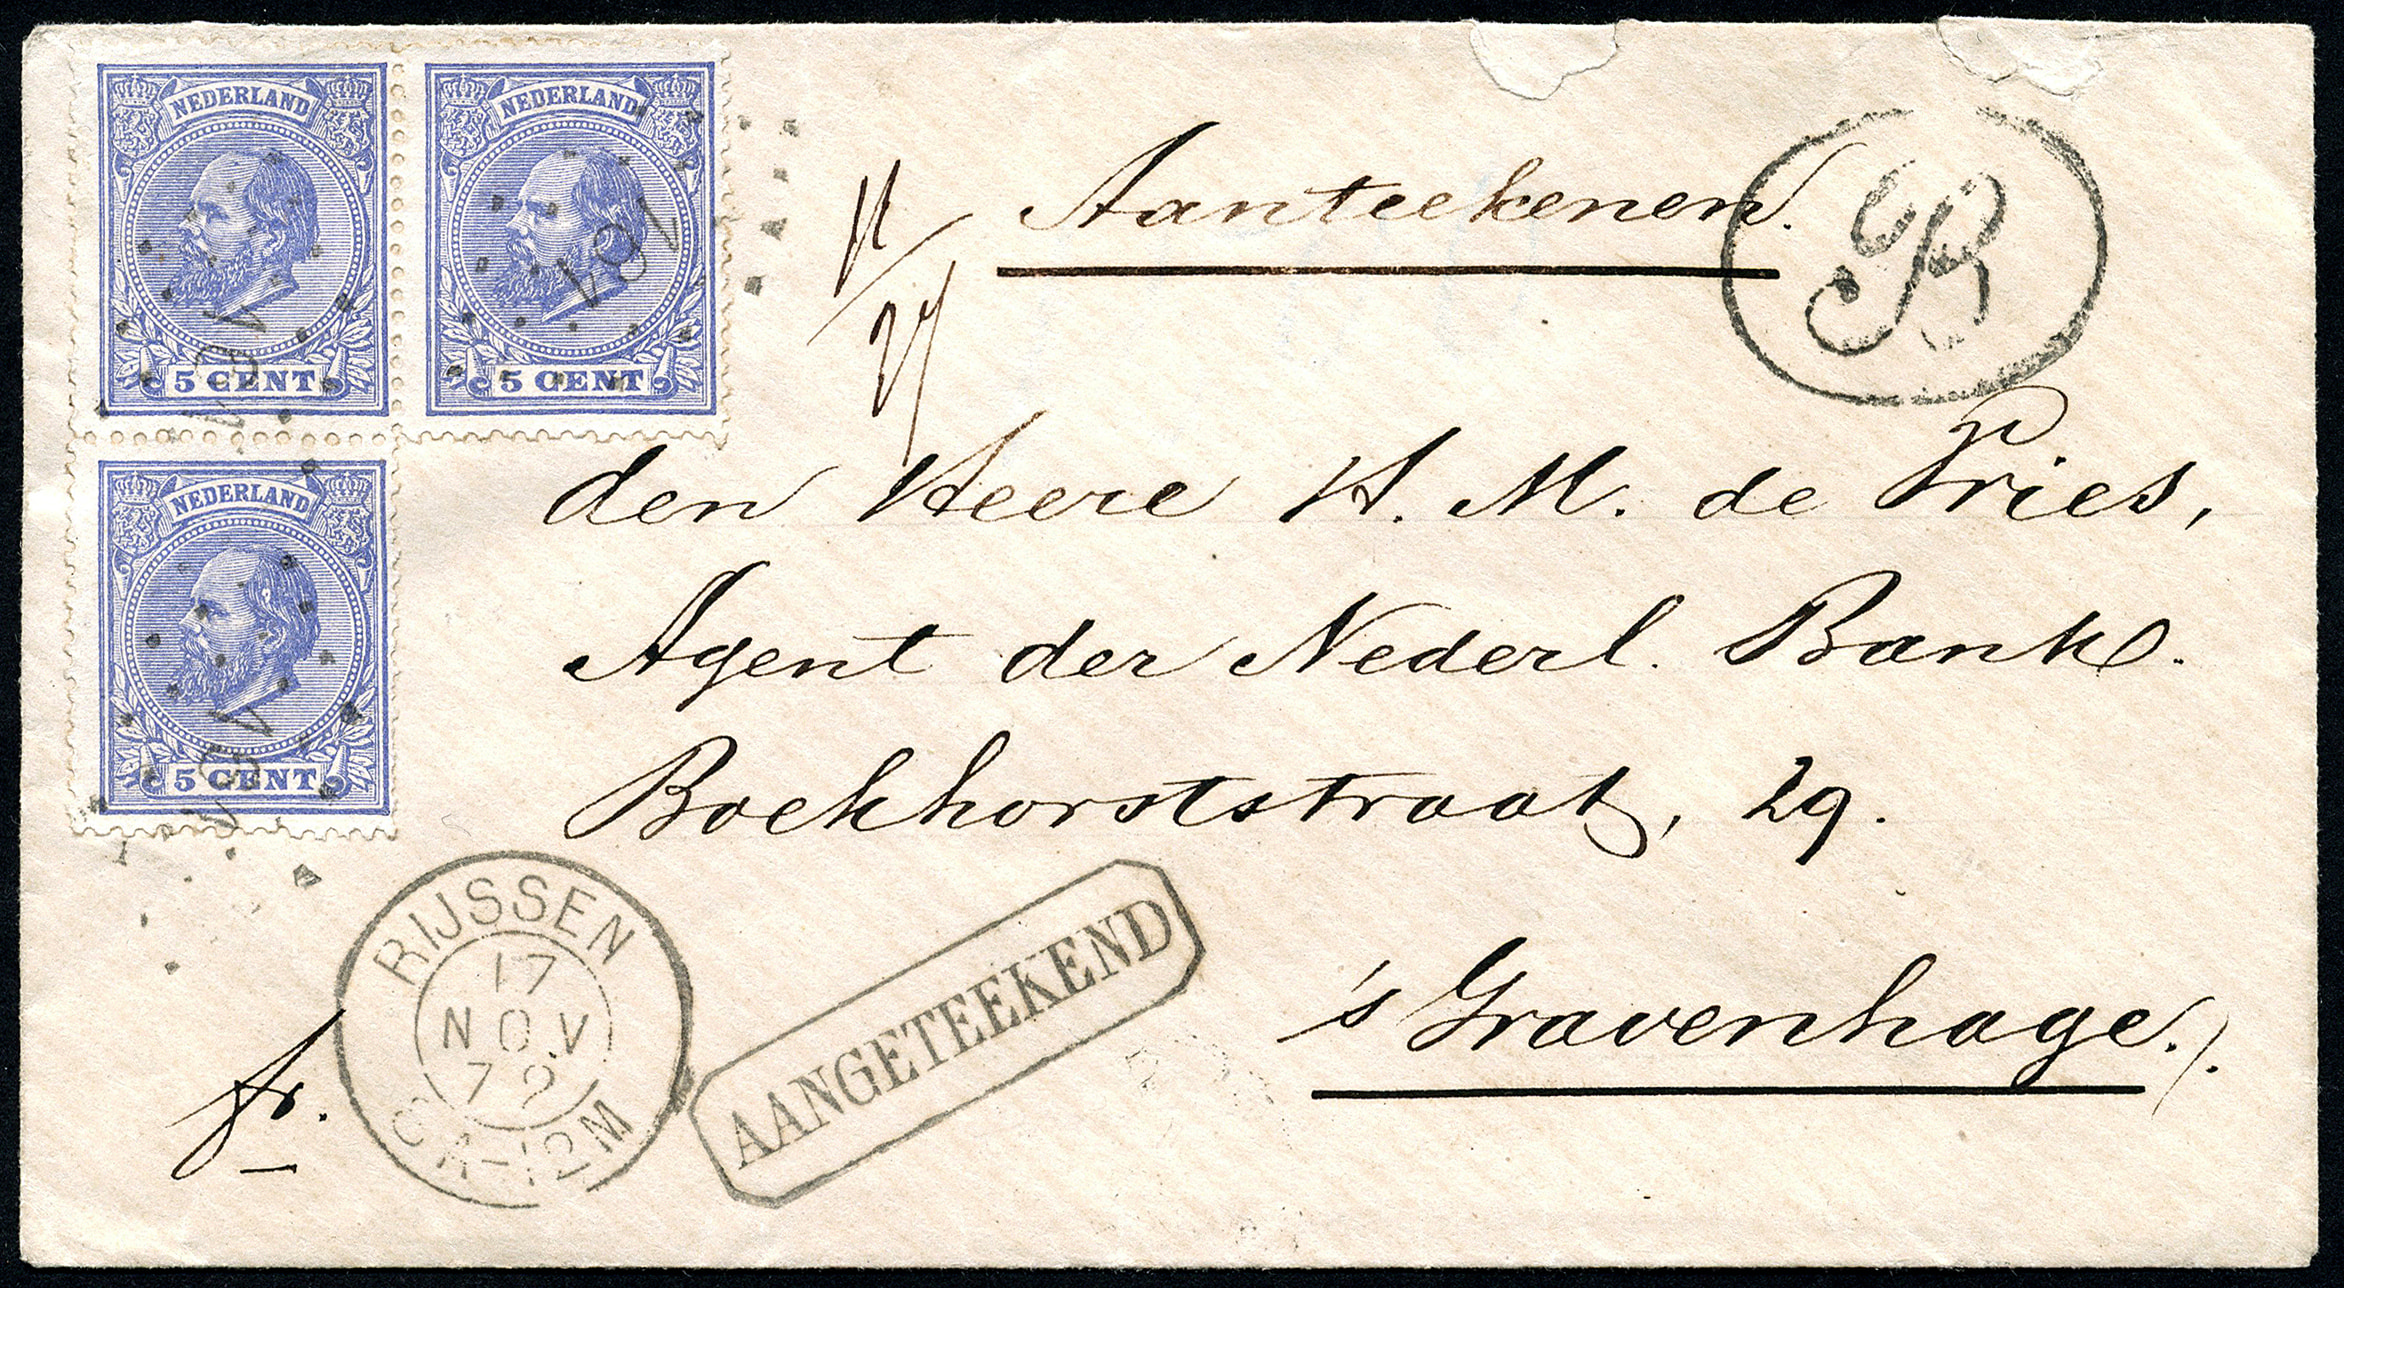 NEDERLAND
5 CENT
NEDERLAND
5 CENT
NEDERLAND
5 CENT
Aanteekenen.
R
den Heere H. M. de Vries,
Agent der Nederl. Bank.
Boekhorststraat, 29.
's Gravenhage.
fr.
RIJSSEN
17
NOV
79
AANGETEEKEND